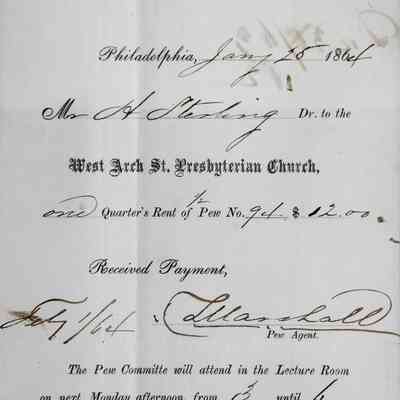 Philadelphia, Jany 25 1864
Mr H Sterling Dr. to the
West Arch St. Presbyterian Church,
one Quarter's Rent of ½ Pew No. 94 $12.00
Received Payment,
Feby 1/64 Marshall
Pew Agent.
The Pew Committe will attend in the Lecture Room
on next Monday afternoon, from 3 until 6